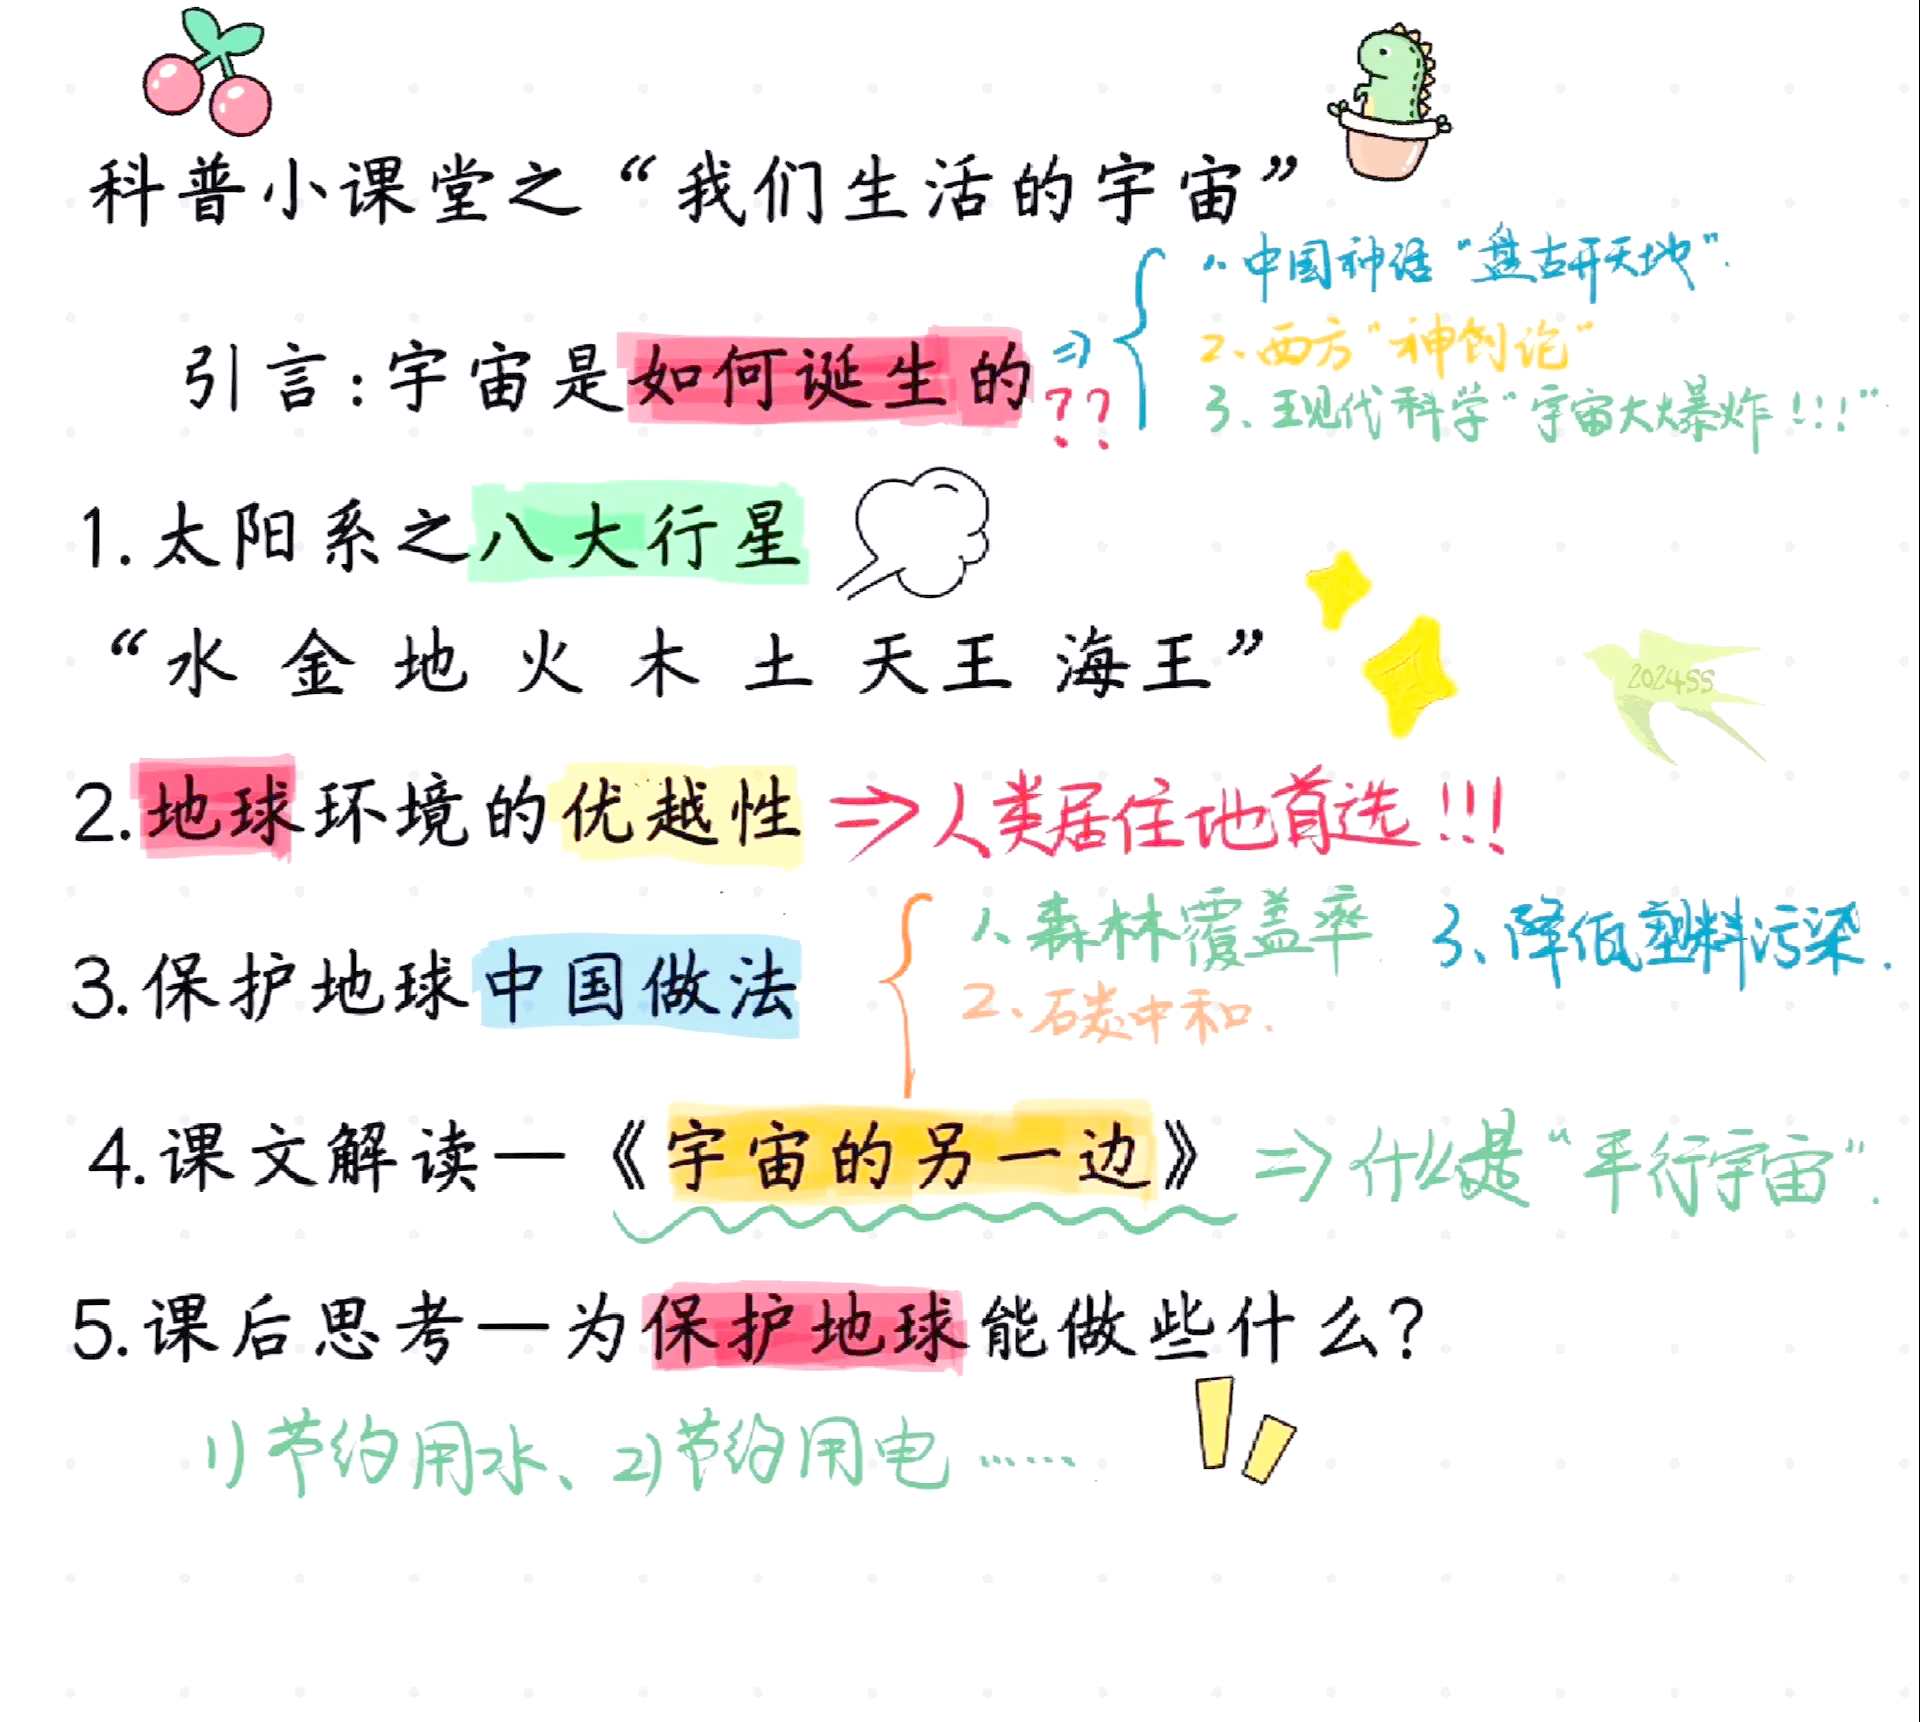 科普小课堂之“我们生活的宇宙”
引言:宇宙是如何诞生的??⇒
1.中国神话“盘古开天地”.
2.西方“神创论”
3.现代科学“宇宙大爆炸!!!”
1.太阳系之八大行星
“水 金 地 火 木 土 天王 海王”
2024SS
2.地球环境的优越性⇒人类居住地首选!!!
3.保护地球中国做法
1.森林覆盖率
2.石炭中和.
3、降低塑料污染.
4.课文解读—《宇宙的另一边》⇒什么是“平行宇宙”.
5.课后思考—为保护地球能做些什么?
1)节约用水、2)节约用电……